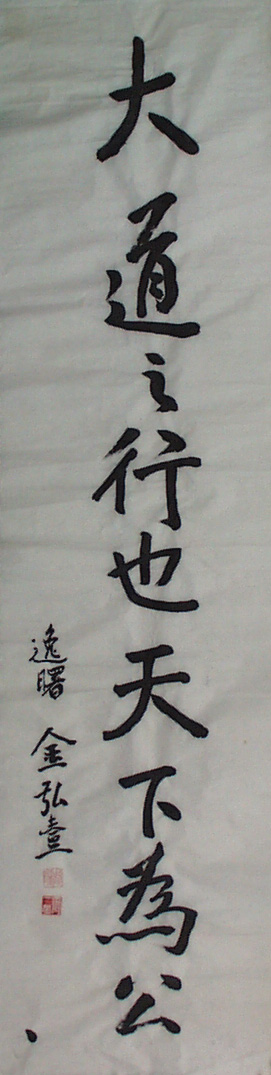 大道之行也天下為公
逸曙 金弘壹